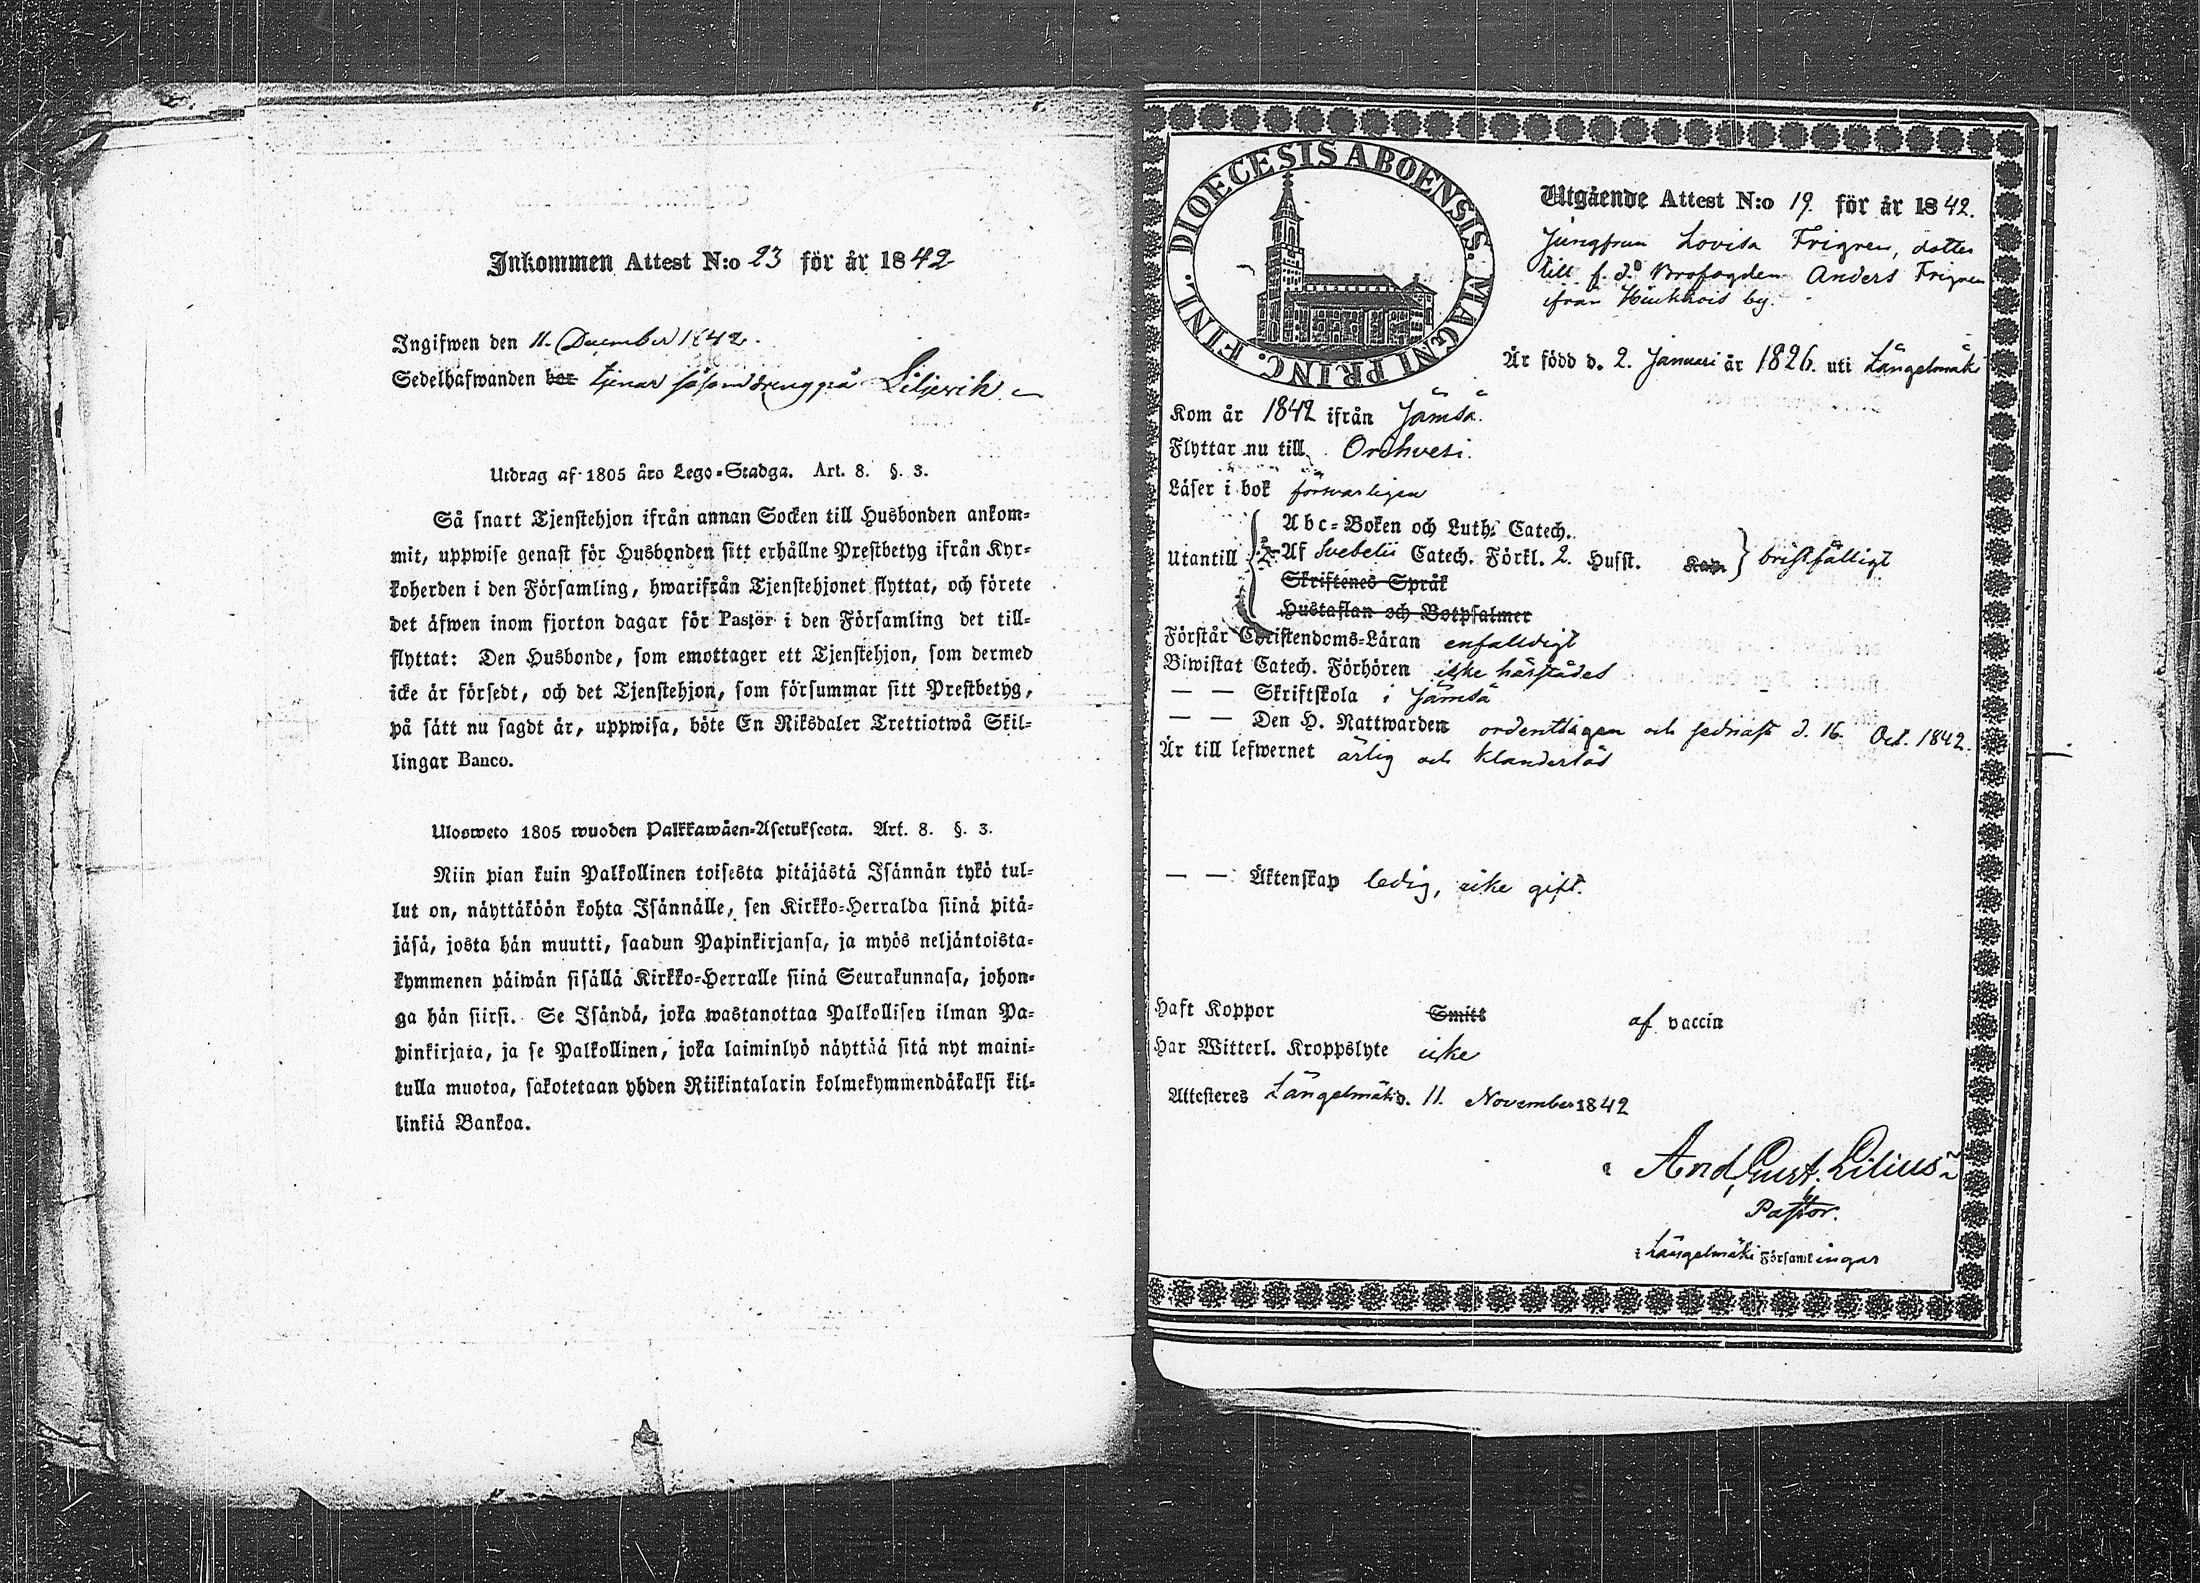 Inkommen Attest N:o 23 för år 1842
Ingifwen den 11. December 1842.
Sedelhafwanden bor tjenar såsom dreng på Liljerik
Utdrag af 1805 års Lego-Stadga. Art. 8. §. 3.
Så snart Tjenstehjon ifrån annan Socken till Husbonden ankom-
mit, uppwise genast för Husbonden sitt erhållne Prestbetyg ifrån Kyr-
koherden i den Församling, hwarifrån Tjenstehjonet flyttat, och förete
det äfwen inom fjorton dagar för Pastor i den Församling det till-
flyttat: Den Husbonde, som emottager ett Tjenstehjon, som dermed
icke är försedt, och det Tjenstehjon, som försummar sitt Prestbetyg,
på sätt nu sagdt är, uppwisa, böte En Riksdaler Trettiotwå Skil-
lingar Banco.
Ulosweto 1805 wuoden Palkkawäen-Asetuksesta. Art. 8. §. 3.
Niin pian kuin Palkollinen toisesta pitäjästä Isännän tykö tul-
lut on, näyttäköön kohta Isännälle, sen Kirkko-Herralda siinä pitä-
jäsä, josta hän muutti, saadun Papinkirjansa, ja myös neljäntoista-
kymmenen päiwän sisällä Kirkko-Herralle siinä Seurakunnasa, johon-
ga hän siirsi. Se Isändä, joka wastanottaa Palkollisen ilman Pa-
pinkirjata, ja se Palkollinen, joka laiminlyö näyttää sitä nyt maini-
tulla muotoa, sakotetaan yhden Riikintalarin kolmekymmendäkaksi kil-
linkiä Bankoa.
DIOECESIS ABOENSIS. MAGNI PRINC. FINL.
Utgående Attest N:o 19. för år 1842.
Jungfrun Lovisa Frigren, dotter
till f. d. Brofogden Anders Frigren
ifrån by.
Är född d. 2. Januari år 1826. uti Längelmäki
Kom år 1842 ifrån Jämsä.
Flyttar nu till Orihvesi.
Läser i bok försvarligen
Abc-Boken och Luth. Catech.
Utantill Af Svebelii Catech. Förkl. 2. Hufst. Kap. bristfälligt
Skriftenes Språk
Hustaflan och Botpsalmer
Förstår Christendoms-Läran enfalldigt
Biwistat Catech. Förhören icke härstädes
— — Skriftskola i Jämsä
— — Den H. Nattwarden ordentligen och sednast d. 16. Oct. 1842.
Är till lefwernet ärlig och klanderlös
— — Äktenskap ledig, icke gift.
Haft Koppor Smitt af vaccin
Har Witterl. Kroppslyte icke
Attesteres Längelmäki d. 11. November 1842
And. Gust. Lilius
Pastor.
i Längelmäki Församlingar